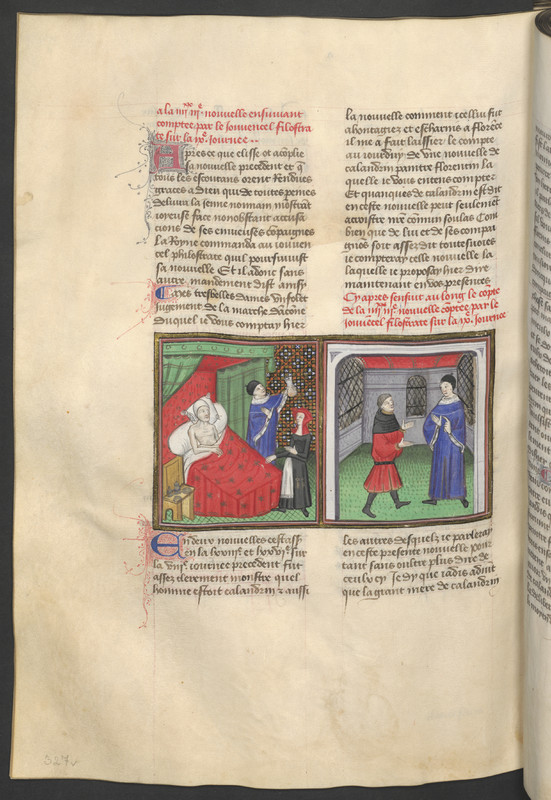 a la iiii. nouvelle ensuivant
comptee par le iouvencel filostra
te sur la ix. iournee
Apres ce que elisse ot acomplie
sa nouvelle precedent et q
tous les escoutans orent rendues
graces a dieu qui de toutes peines
delivra la ienne nonnain monstrat
ioieuse face nonobstant accusa
cions de ses envieuses compaignes
La Royne commanda au iouven
cel philostrate quil poursuivist
sa nouvelle Et il adonc sans
autre mandement dist ainsy
Cares tresbelles dames un folet
iugement de la marche dancone
Duquel ie vous comptay hier
la nouvelle comment icellui fut
ahontagiez et escharnis a florece
il me a fait laissier le compte
au iourduy de une nouvelle de
calandrin paintre florentin la
quelle ie vous entens compter
Et quanques de calandrin est dit
en ceste nouvelle peut seulement
accroistre nre commun soulas Com
bien que de lui et de ses compai
gnons soit assez dit toutesvoies
ie compteray celle nouvelle la
laquelle ie proposay hier dire
maintenant en vos presences
Cy apres sensuit au long le copte
de la iiii. nouvelle coptee par le
iouvencel filostrate sur la ix. iournee
En deux nouvelles cest ass
en la et sur
la viii. iournee precedent fut
assez clerement monstre quel
homme estoit calandrin et aussi
les autres desquelz ie parleray
en ceste presente nouvelle pour
tant sans oultre plus dire de
ceulx cy ie dy que iadis advint
que la grant mere de calandrin
327v